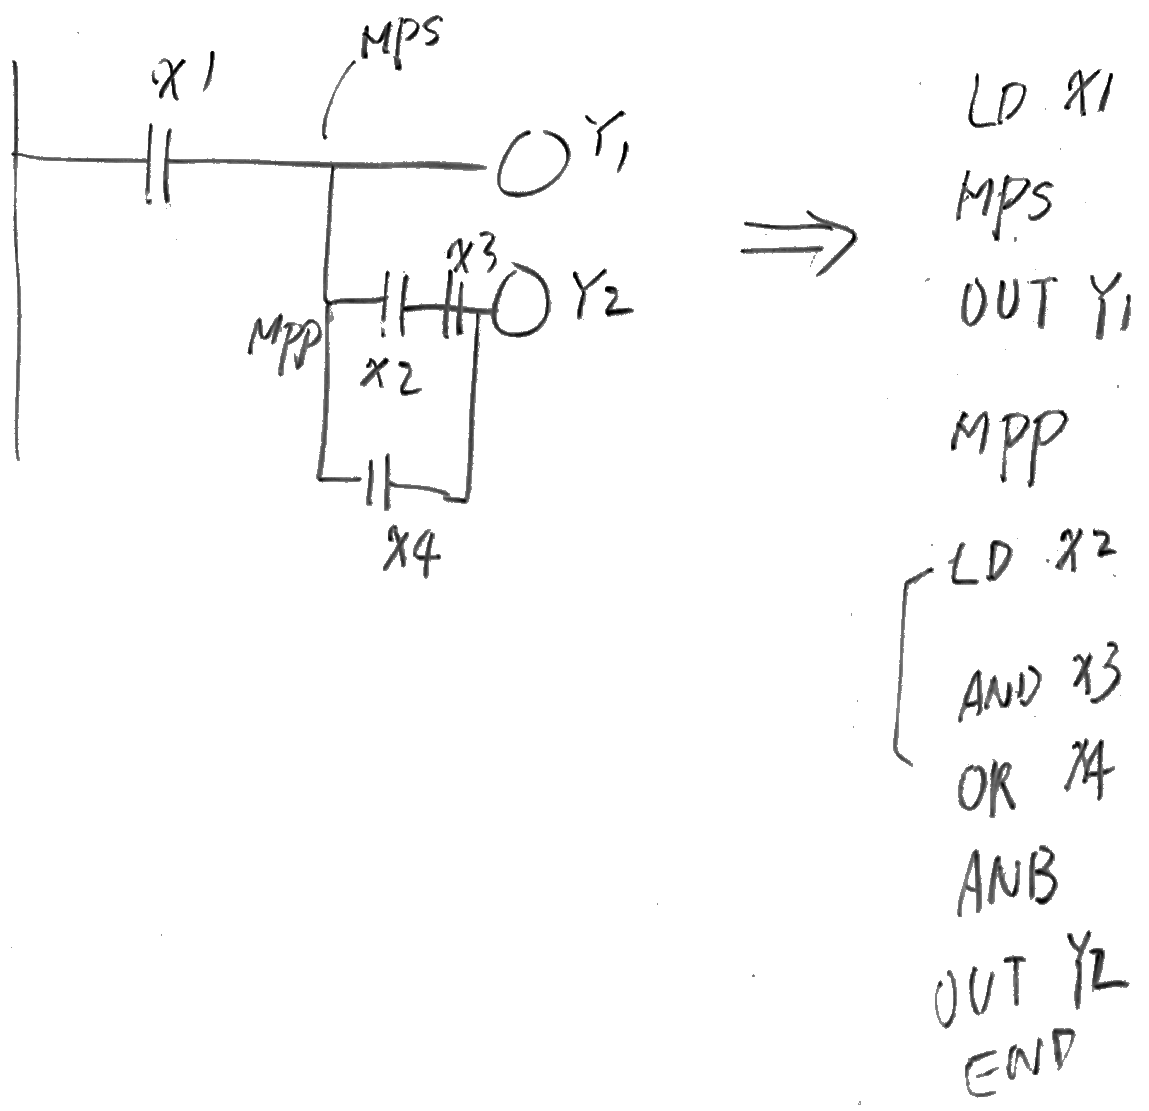 MPS
X1
Y1
X3
Y2
MPP
X2
X4
LD X1
MPS
OUT Y1
MPP
LD X2
AND X3
OR X4
ANB
OUT Y2
END